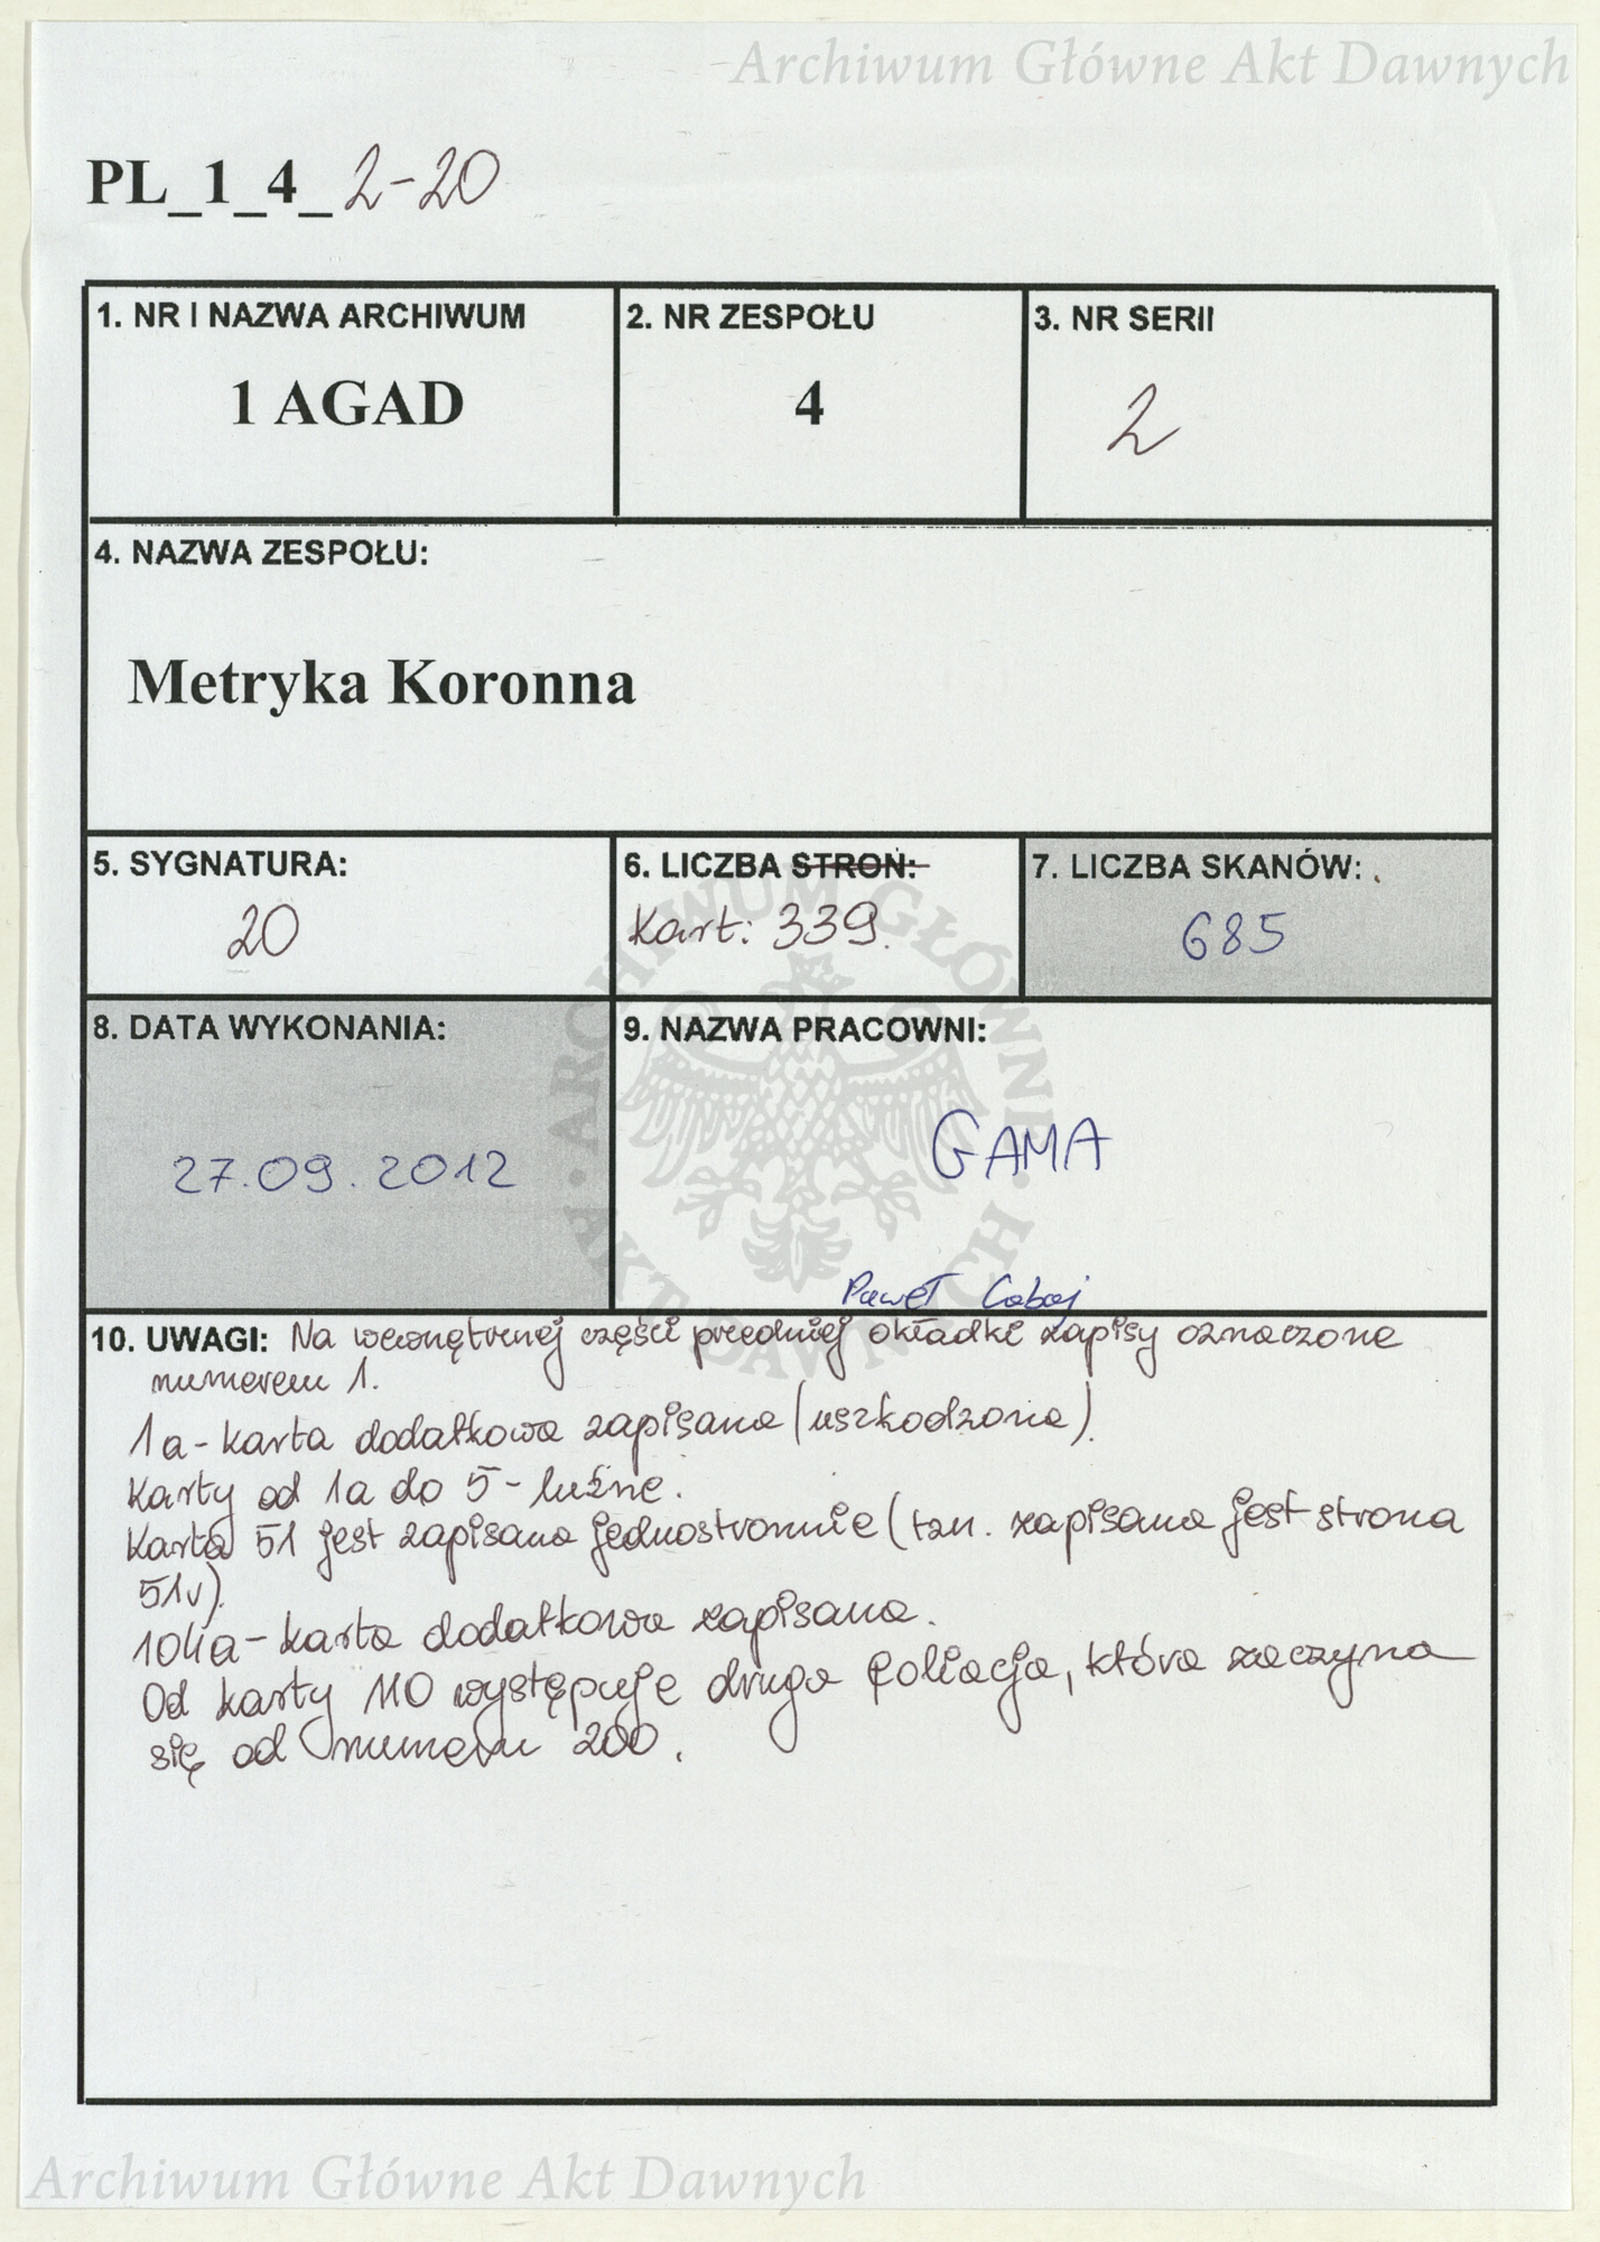 Archiwum Główne Akt Dawnych
PL_1_4_2-20
1. NR I NAZWA ARCHIWUM
1 AGAD
2. NR ZESPOŁU
4
3. NR SERII
2
4. NAZWA ZESPOŁU:
Metryka Koronna
5. SYGNATURA:
20
6. LICZBA STRON:
Kart: 339.
7. LICZBA SKANÓW:
685
8. DATA WYKONANIA:
27.09.2012
9. NAZWA PRACOWNI:
GAMA
Paweł
ARCHIWUM GŁÓWNE AKT DAWNYCH
10. UWAGI: Na wewnętrznej części przedniej okładki zapisy oznaczone
numerem 1.
1a - karta dodatkowa zapisana (uszkodzona).
Karty od 1a do 5 - luźne.
Karta 51 jest zapisana jednostronnie (tzn. zapisana jest strona
51v).
104a - karta dodatkowa zapisana.
Od karty 110 występuje druga foliacja, która zaczyna
się od numeru 200.
Archiwum Główne Akt Dawnych